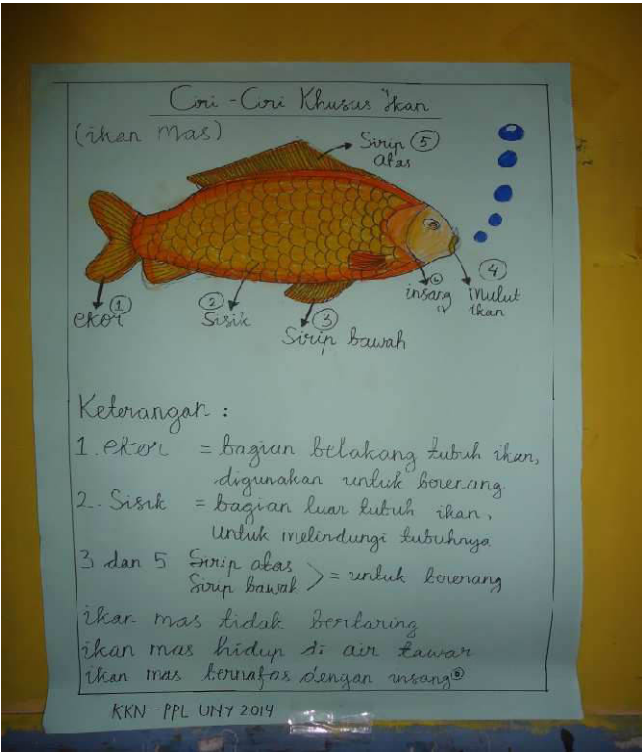 Ciri-Ciri Khusus Ikan
(ikan mas)
Sirip 5
atas
4
1
ekor
2
Sisik
3
Sirip bawah
6
insang
mulut
ikan
Keterangan :
1. ekor = bagian belakang tubuh ikan,
digunakan untuk berenang
2. Sisik = bagian luar tubuh ikan,
untuk melindungi tubuhnya
3 dan 5 Sirip atas
Sirip bawah > = untuk berenang
ikan mas tidak bertaring
ikan mas hidup di air tawar
ikan mas bernafas dengan insang
KKN PPL UNY 2014